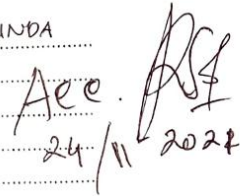 INDA
Acc.
24/11 2021